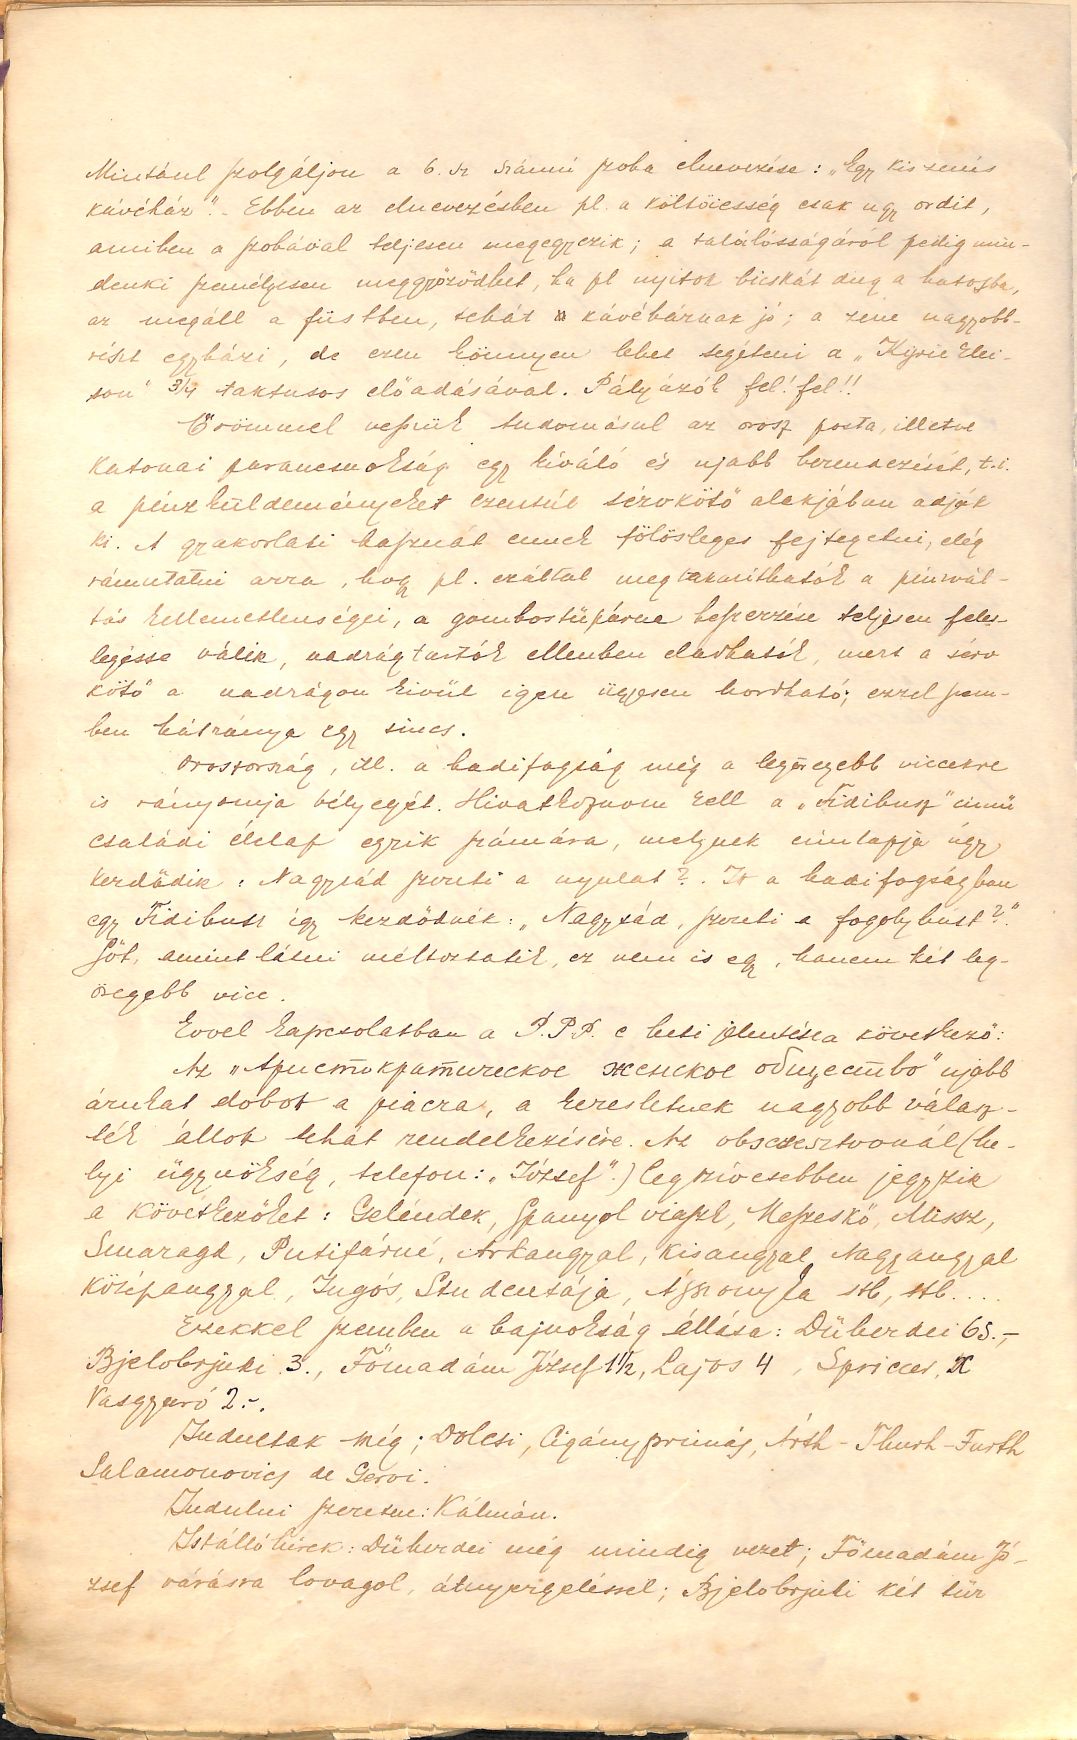 Mintául szolgáljon a 6. sz. számú szoba elnevezése: „Egy kis zenés
kávéház". - Ebben az elnevezésben pl. a költőiesség csak ugy ordit,
amiben a szobával teljesen megegyezik; a találósságáról pedig min-
denki személyesen meggyőződhet, ha pl nyitok bicskát dug a
az megáll a füstben, tehát kávéháznak jó; a zene nagyobb-
részt egyházi, de ezen könnyen lehet segíteni a „Kyrie Elei-
son" 3/4 taktusos előadásával. Pályázók fel! fel!!
Örömmel veszük tudomásul az orosz posta, illetve
katonai parancsnokság egy kiváló és ujabb berendezését, t.i.
a pénzküldeményeket ezentúl sérvkötő alakjában adják
ki. A gyakorlati hasznát ennek fölösleges fejtegetni, elég
rámutatni arra, hogy pl. ezáltal megtakaríthatók a pénzvál-
tás kellemetlenségei, a gombostűpárna beszerzése teljesen feles-
legessé válik, nadrágtartók ellenben eladhatók, mert a sérv
kötő a nadrágon kivül igen ügyesen hordható; ezzel szem-
ben hátránya egy sincs.
Oroszország, ill. a hadifogság még a legöregebb viccekre
is rányomja bélyegét. Hivatkoznom kell a „Fidibusz" cimü
családi élclap egyik számára, melynek cimlapja úgy
kezdődik: Nagysád szereti a nyulat?. Itt a hadifogságban
egy Fidibusz így kezdődnék: „Nagysád, szereti a fogolyhúst?".
Sőt, amint látni méltóztatik, ez nem is egy, hanem két leg-
öregebb vicc.
Evvel kapcsolatban a P.P.P. e heti jelentése a következő:
Az „Аристократическое женское общество" ujabb
árukat dobott a piacra, a keresletnek nagyobb válasz-
ték állott tehát rendelkezésére. Az obscsesztvonál (he-
lyi ügynökség, telefon: „József".) legszívesebben jegyzik
a következőket: Geléndek, Spanyol viasz, Meszeskő, Missz,
Smaragd, Putifárné, Arkangyal, Kisangyal, Nagyangyal
Középangyal, Jugós, Studentája, stb, stb....
Ezekkel szemben a bajnokság állása: Düberdei 65.,-
Bjelobrjuki 3., Főmadám József 1½, Lajos 4, Spriccer, X
Vasgyuró 2.-.
Indultak még; Dolcsi, Cigányprimás, Árth - Thurh - Furth
Salamonovics de Gervi.
Indulni szeretne: Kálmán.
Istállóhírek: Düberdei még mindig vezet; Főmadám Jó-
zsef várásra lovagol, átnyergeléssel; Bjelobrjuki két tür